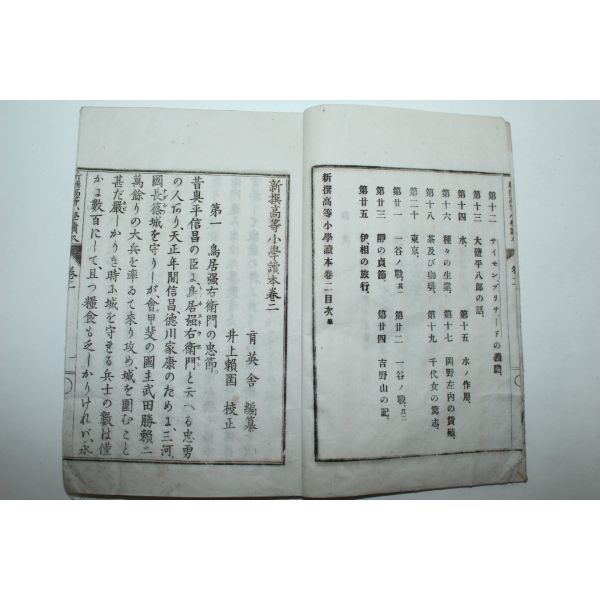 第十二 サイモンブリサードの義膽、
第十三 大鹽平八郎の話、
第十四 水、 第十五 水ノ作用、
第十六 種々の生業、 第十七 岡野左内の貨殖、
第十八 茶及び珈琲、 第十九 千代女の篤志、
第二十 東京、
第廿一 一谷ノ戰、其一 第廿二 一谷ノ戰、其二
第廿三 靜の貞節、 第廿四 吉野山の記、
第廿五 伊相の旅行、
新撰高等小學讀本卷二目次終
新撰高等小學讀本卷二
育英舍 編纂
井上賴圀 校正
第一 鳥居强右衛門の忠節、
昔奥平信昌の臣よ、鳥居强右衛門と云へる忠勇
の人あり、天正年間信昌、德川家康のためよ、三河
國長篠城を守りーが、會甲斐の國主武田勝賴二
萬餘りの大兵を率ゐて來り攻め、城を圍むこと
甚だ嚴ーかりき、時ふ城を守きる兵士の數は僅
かよ數百にーて且つ糧食も乏ーかりけれバ、永
新撰高等小學讀本 卷二